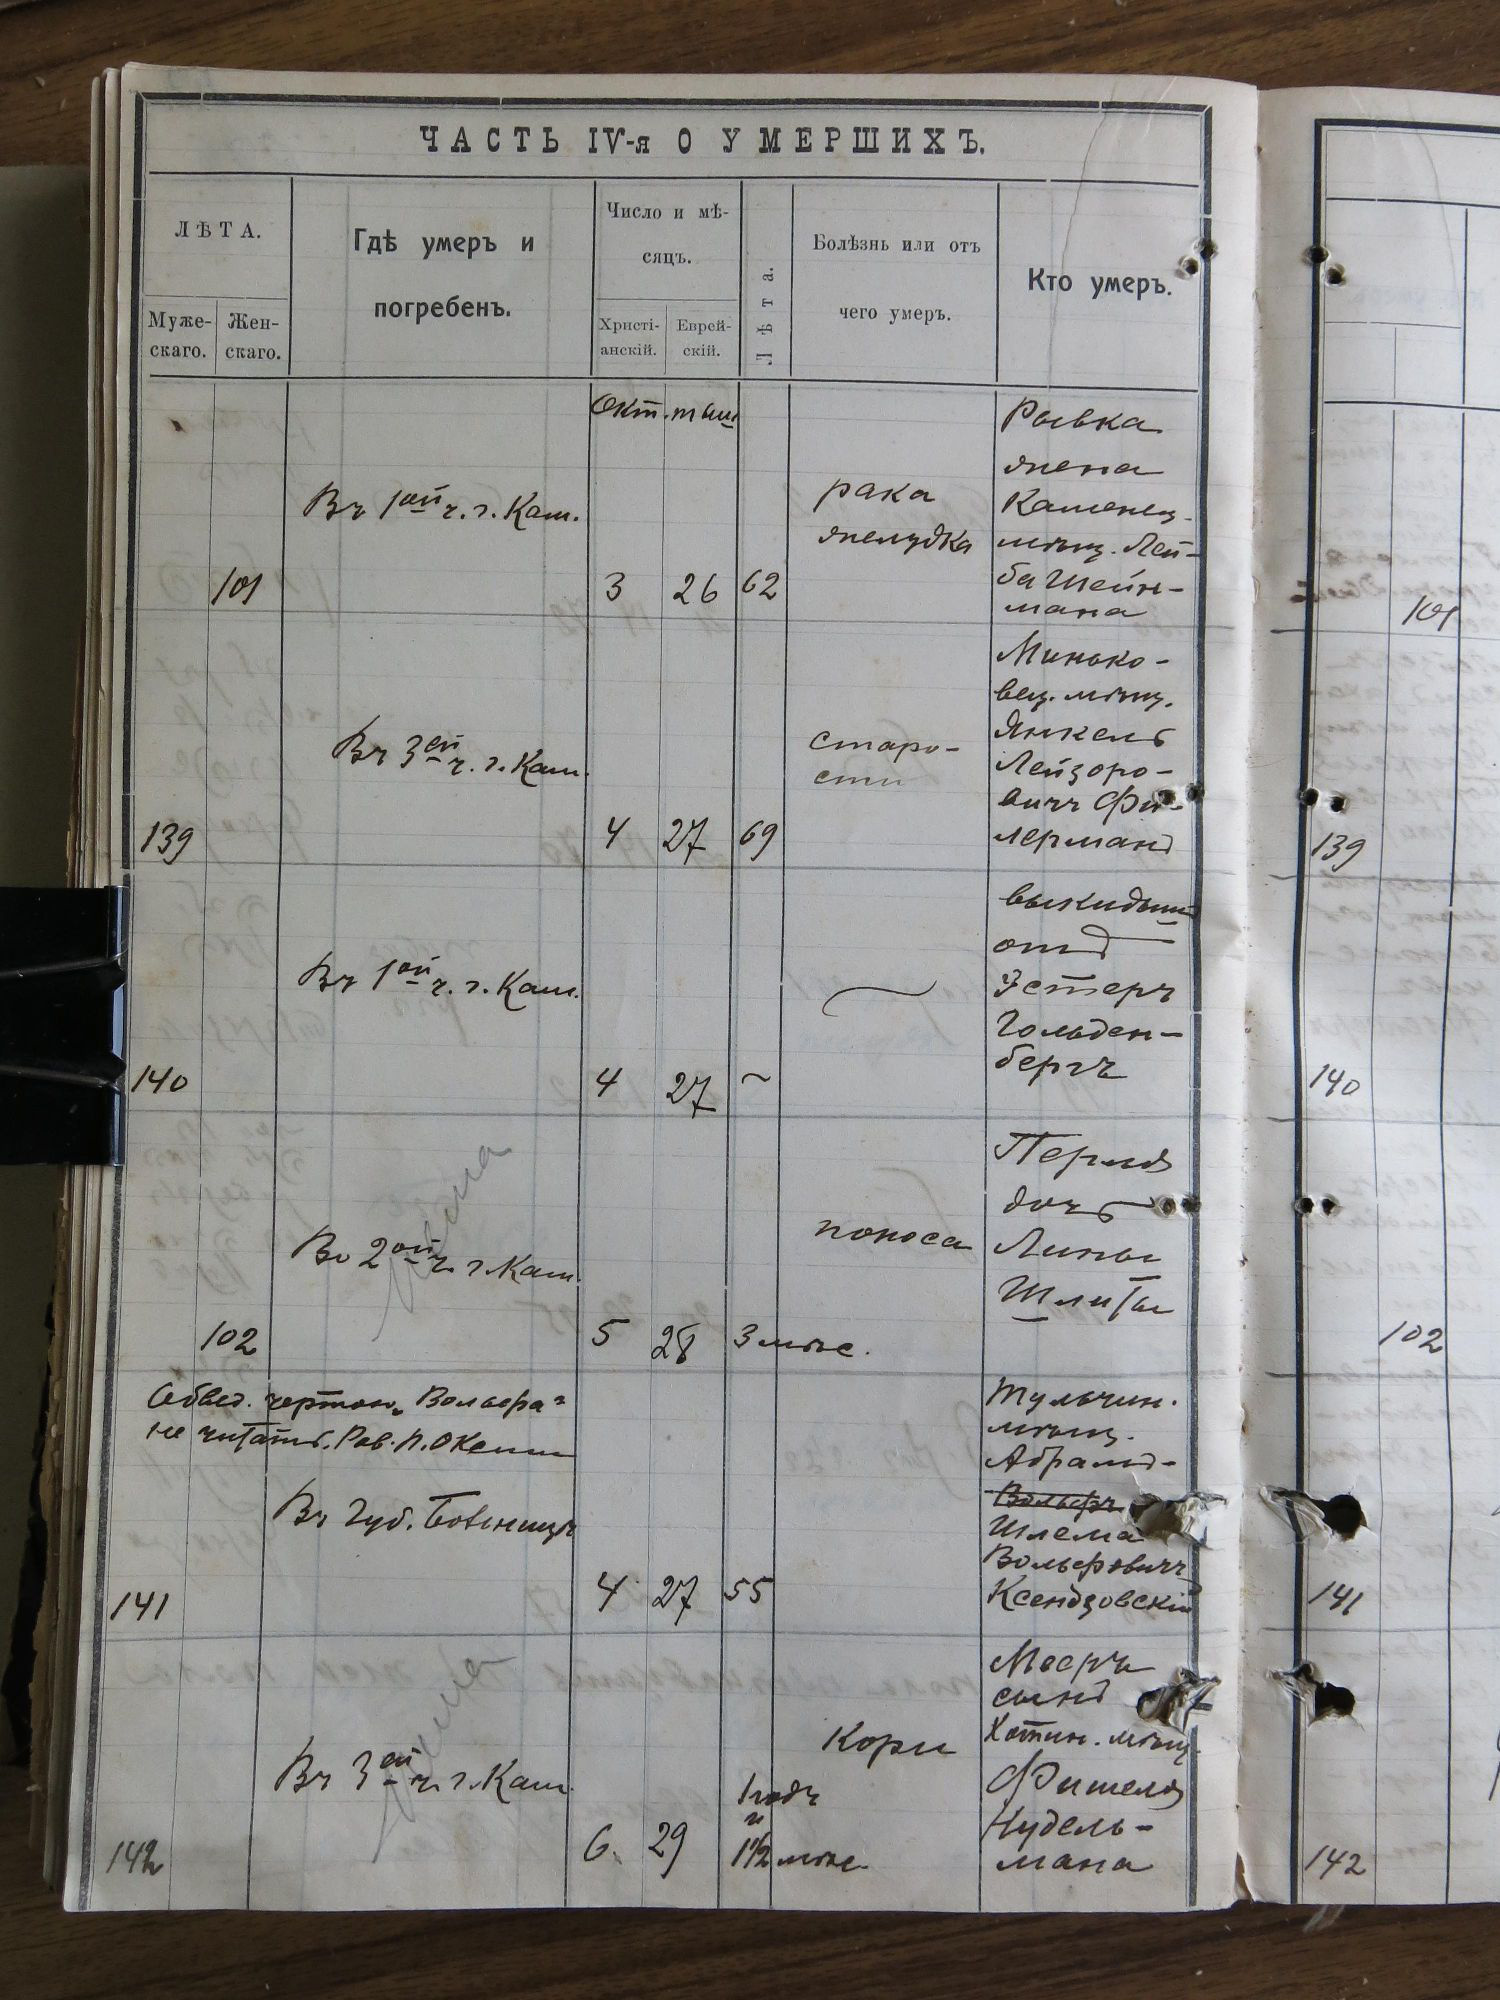 ЧАСТЬ IV-я О УМЕРШИХЪ.
ЛѢТА.
Муже-
скаго.
Жен-
скаго.
Гдѣ умеръ и
погребенъ.
Число и мѣ-
сяцъ.
Христі-
анскій.
Еврей-
скій.
Лѣта.
Болѣзнь или отъ
чего умеръ.
Кто умеръ.
Окт. тыш.
101
Въ 1ой ч. г. Кам.
3 26 62
рака
желудка
Рывка
жена
Каменец.
мѣщ. Лей-
ба Шейн-
мана
139
Въ 3ей ч. г. Кам.
4 27 69
старо-
сти
Минько-
вец. мѣщ.
Янкель
Лейзоро-
вичъ Фи-
лерманъ
140
Въ 1ой ч. г. Кам.
4 27 ~
выкидыш
отъ
Эстеръ
Гольден-
бергъ
102
Во 2ой ч. г. Кам.
5 28 3 мѣс.
поноса
Перля
дочь
Лины
Шлиты
141
чертою "Вольфра"
не читать. Рав.
Въ Губ. Больницѣ
4 27 55
Тульчин.
мѣщ.
Абрамъ-
Вольфъ
Шлема
Вольфовичъ
Ксендзовскій
142
Въ 3ей ч. г. Кам.
6 29
1 годъ
и
1 1/2 мѣс.
кори
Мееръ
сынъ
Хотин. мѣщ.
Фишеля
Нудель-
мана
101
139
140
102
141
142